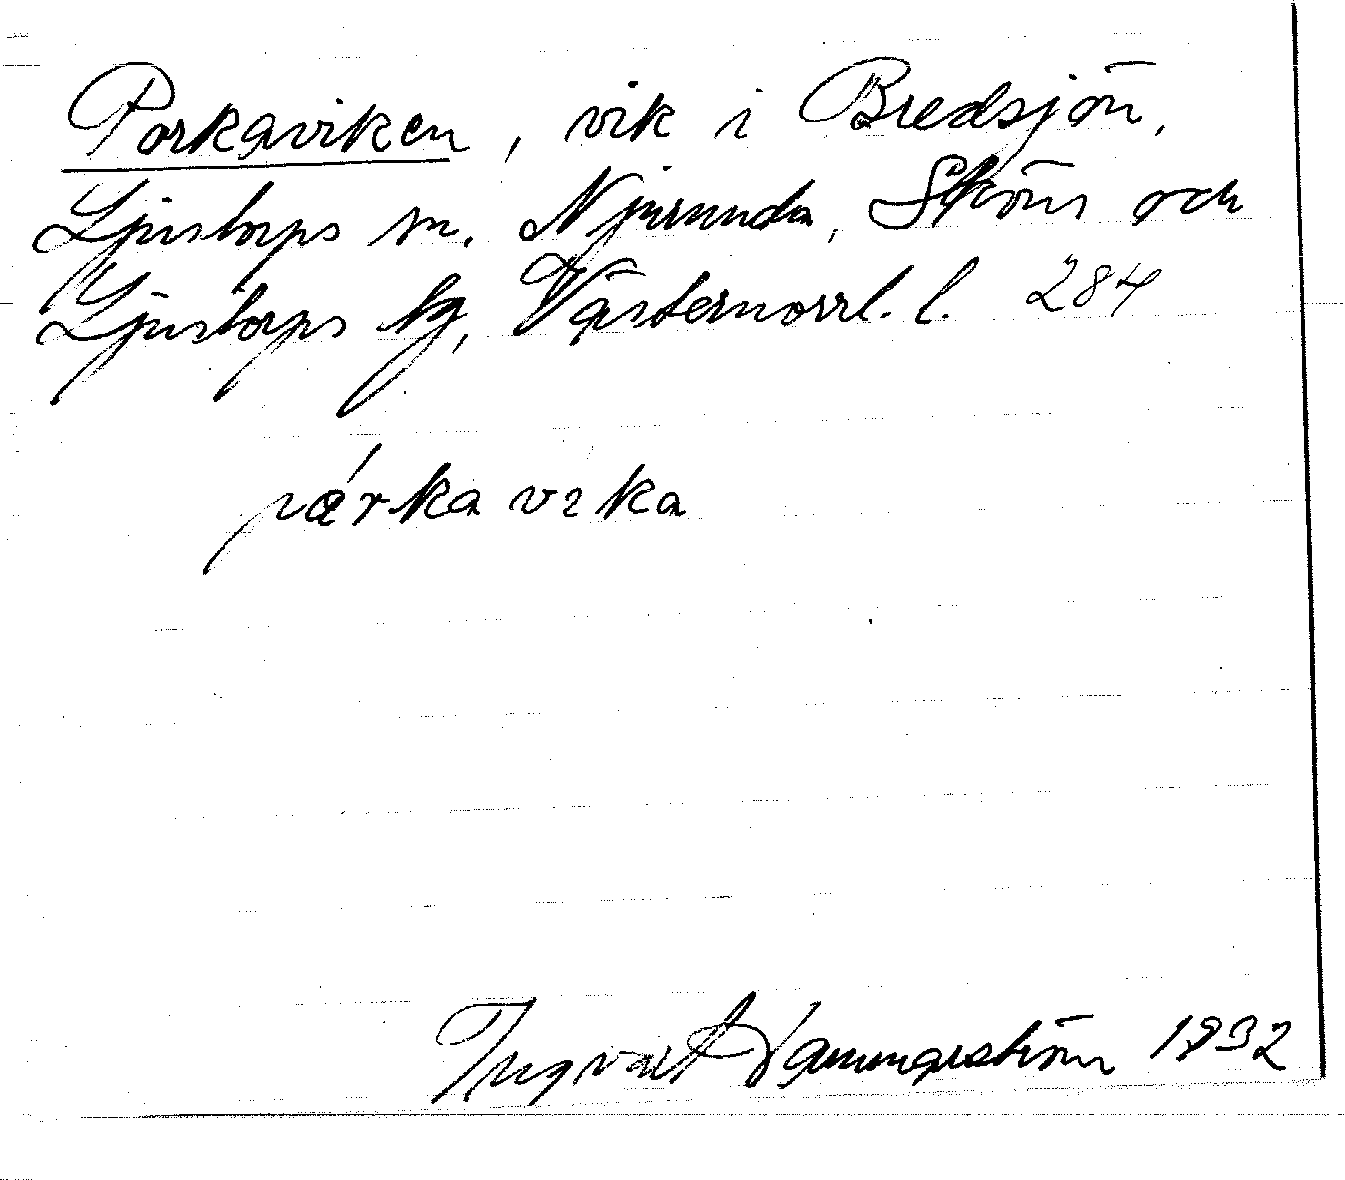 Porkaviken, vik i Bredsjön,
Ljustorps sn. Njurunda, Sköns och
Ljustorps tg, Västernorrl. l. 284
párka vɩka
Ingvar Hammarström 1932